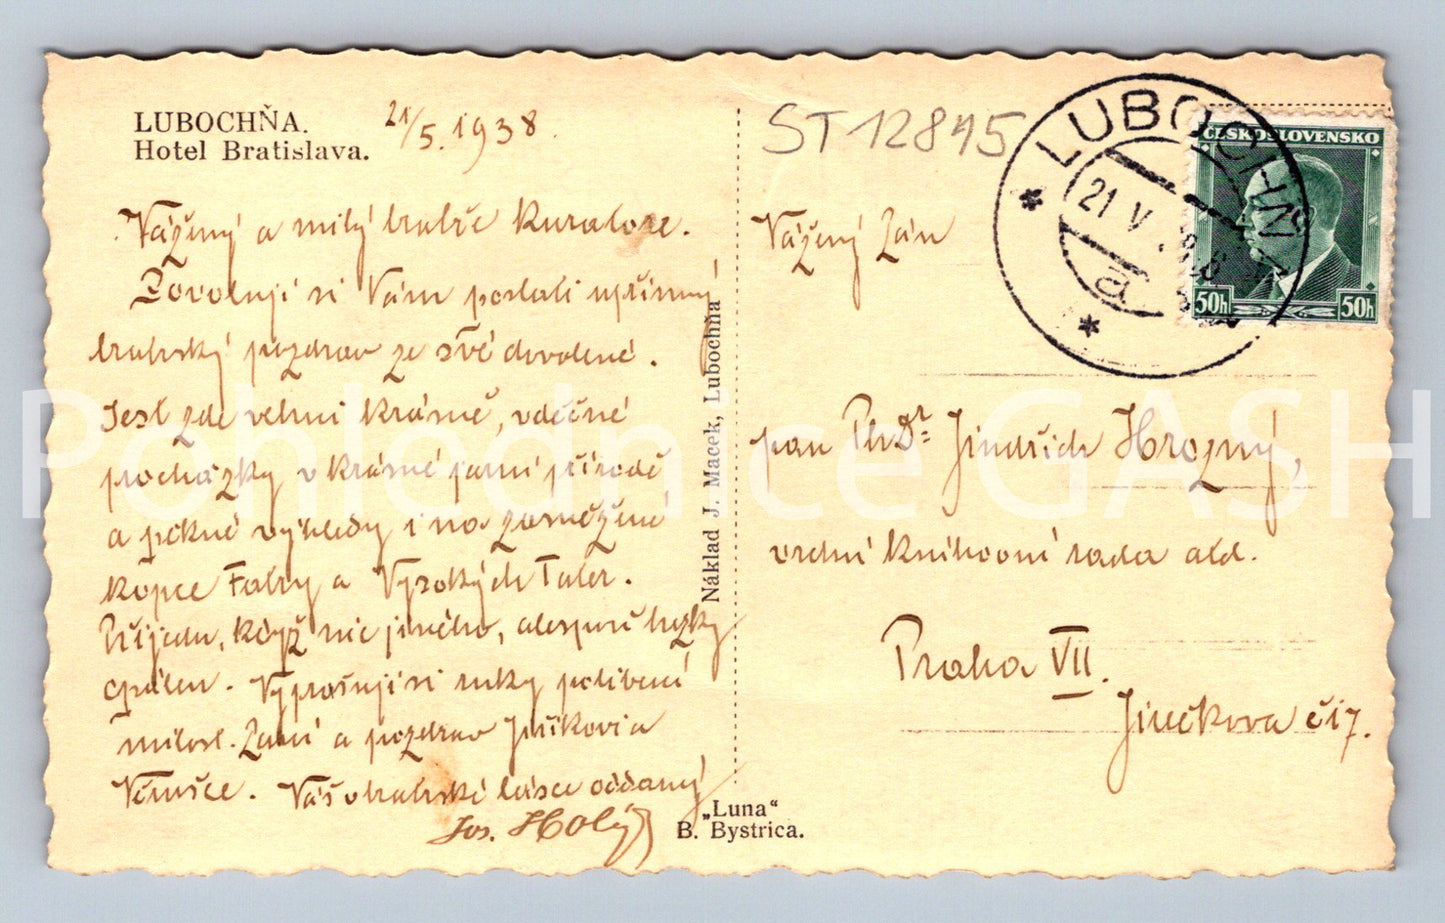 LUBOCHŇA.
Hotel Bratislava.
21/5. 1938.
Vážený a milý bratře Kuratore.
Dovoluji si Vám poslati upřímný
bratrský pozdrav ze své dovolené.
Jest zde velmi krásně, vděčné
procházky v krásné jarní přírodě
a pěkné výhledy i na zasněžené
kopce Fatry a Vysokých Tater.
Přijedu, když nic jiného, alespoň hezky
opálen. Vyprošuji si ruky políbení
milost. Paní a pozdrav Jiříkovi a
Věrušce. Váš v bratrské lásce oddaný
Jos. Holý
Náklad J. Macek, Lubochňa
„Luna“
B. Bystrica.
ST 12845
LUBOCHŇA
21 V
a
ČESKOSLOVENSKO
50h 50h
Vážený Pán
pan PhDr. Jindřich Hrozný,
vrchní knihovní rada atd.
Praha VII.
Jirečkova č 17.
Pohlednice GASH